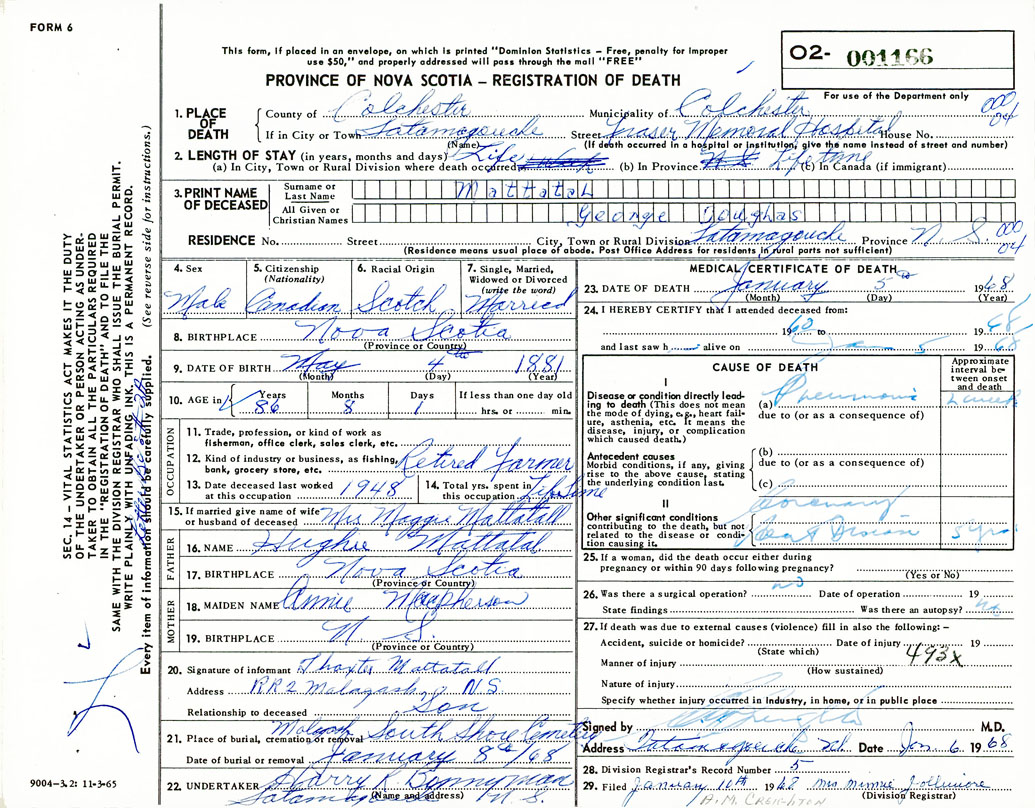 FORM 6
This form, if placed in an envelope, on which is printed "Dominion Statistics – Free, penalty for improper
use $50," and properly addressed will pass through the mail "FREE"
PROVINCE OF NOVA SCOTIA – REGISTRATION OF DEATH
O2- 001166
For use of the Department only
1. PLACE OF DEATH County of Colchester Municipality of Colchester 000 04
If in City or Town Tatamagouche Street Fraser Memorial Hospital House No.
(Name) (If death occurred in a hospital or institution, give the name instead of street and number)
2. LENGTH OF STAY (in years, months and days) Life
(a) In City, Town or Rural Division where death occurred (b) In Province N.S. Lifetime (c) In Canada (if immigrant)
3. PRINT NAME OF DECEASED Surname or Last Name Mattatal
All Given or Christian Names George Doughas
RESIDENCE No. Street City, Town or Rural Division Tatamagouche Province N.S. 000 04
(Residence means usual place of abode. Post Office Address for residents in rural parts not sufficient)
4. Sex Male
5. Citizenship (Nationality) Canadian
6. Racial Origin Scotch
7. Single, Married, Widowed or Divorced (write the word) Married
8. BIRTHPLACE Nova Scotia
(Province or Country)
9. DATE OF BIRTH May 4th 1881
(Month) (Day) (Year)
10. AGE in Years 86 Months 8 Days 1 If less than one day old
hrs. or min.
OCCUPATION
11. Trade, profession, or kind of work as
fisherman, office clerk, sales clerk, etc.
12. Kind of industry or business, as fishing,
bank, grocery store, etc. Retired Farmer
13. Date deceased last worked at this occupation 1948 14. Total yrs. spent in this occupation Life time
15. If married give name of wife
or husband of deceased Mrs Maggie Mattatall
FATHER
16. NAME Hughie Mattatal
17. BIRTHPLACE Nova Scotia
(Province or Country)
MOTHER
18. MAIDEN NAME Annie MacPherson
19. BIRTHPLACE N S.
(Province or Country)
20. Signature of informant Thaxter Mattatall
Address RR2 Malagash, N.S.
Relationship to deceased Son
21. Place of burial, cremation or removal Malagash South Shore Cemetery
Date of burial or removal January 8th/68
22. UNDERTAKER Harry R Bonnyman
Tatamag N.S.
(Name and address)
MEDICAL CERTIFICATE OF DEATH
23. DATE OF DEATH January 5th 1968
(Month) (Day) (Year)
24. I HEREBY CERTIFY that I attended deceased from:
1960 to 1968
and last saw h alive on Jan 5 1968
CAUSE OF DEATH
Approximate interval between onset and death
I
Disease or condition directly leading to death (This does not mean
the mode of dying, e.g., heart failure, asthenia, etc. It means the
disease, injury, or complication
which caused death.)
(a) Pneumonia 1 week
due to (or as a consequence of)
Antecedent causes
Morbid conditions, if any, giving
rise to the above cause, stating
the underlying condition last.
(b)
due to (or as a consequence of)
(c)
II
Other significant conditions
contributing to the death, but not
related to the disease or condition causing it.
Coronary
Heart Disease 5 yrs
25. If a woman, did the death occur either during
pregnancy or within 90 days following pregnancy?
(Yes or No)
26. Was there a surgical operation? no Date of operation 19
State findings Was there an autopsy? no
27. If death was due to external causes (violence) fill in also the following: –
Accident, suicide or homicide? Date of injury 19
(State which) 493x
Manner of injury
(How sustained)
Nature of injury
Specify whether injury occurred in industry, in home, or in public place
Signed by M.D.
Address Tatamagouche Date Jan. 6 1968
28. Division Registrar's Record Number 5
29. Filed January 10th 1968 Mrs Minnie Jollimore
(Division Registrar)
A.M. CREIGHTON
SEC. 14 – VITAL STATISTICS ACT MAKES IT THE DUTY
OF THE UNDERTAKER OR PERSON ACTING AS UNDER-
TAKER TO OBTAIN ALL THE PARTICULARS REQUIRED
IN THE "REGISTRATION OF DEATH" AND TO FILE THE
SAME WITH THE DIVISION REGISTRAR WHO SHALL ISSUE THE BURIAL PERMIT.
WRITE PLAINLY WITH UNFADING INK. THIS IS A PERMANENT RECORD.
Every item of information should be carefully supplied. (See reverse side for instructions.)
9004-3.2: 11-3-65